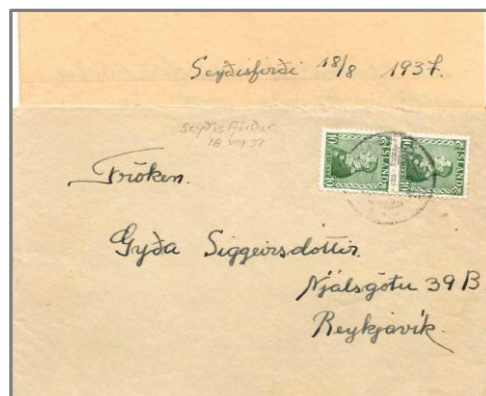 Seyðisfirði 18/8 1937.
Seyðisfjörður
18 VIII 37
ÍSLAND
10
ÍSLAND
10
Fröken.
Gyða Siggeirsdóttir.
Njálsgötu 39 B
Reykjavík.